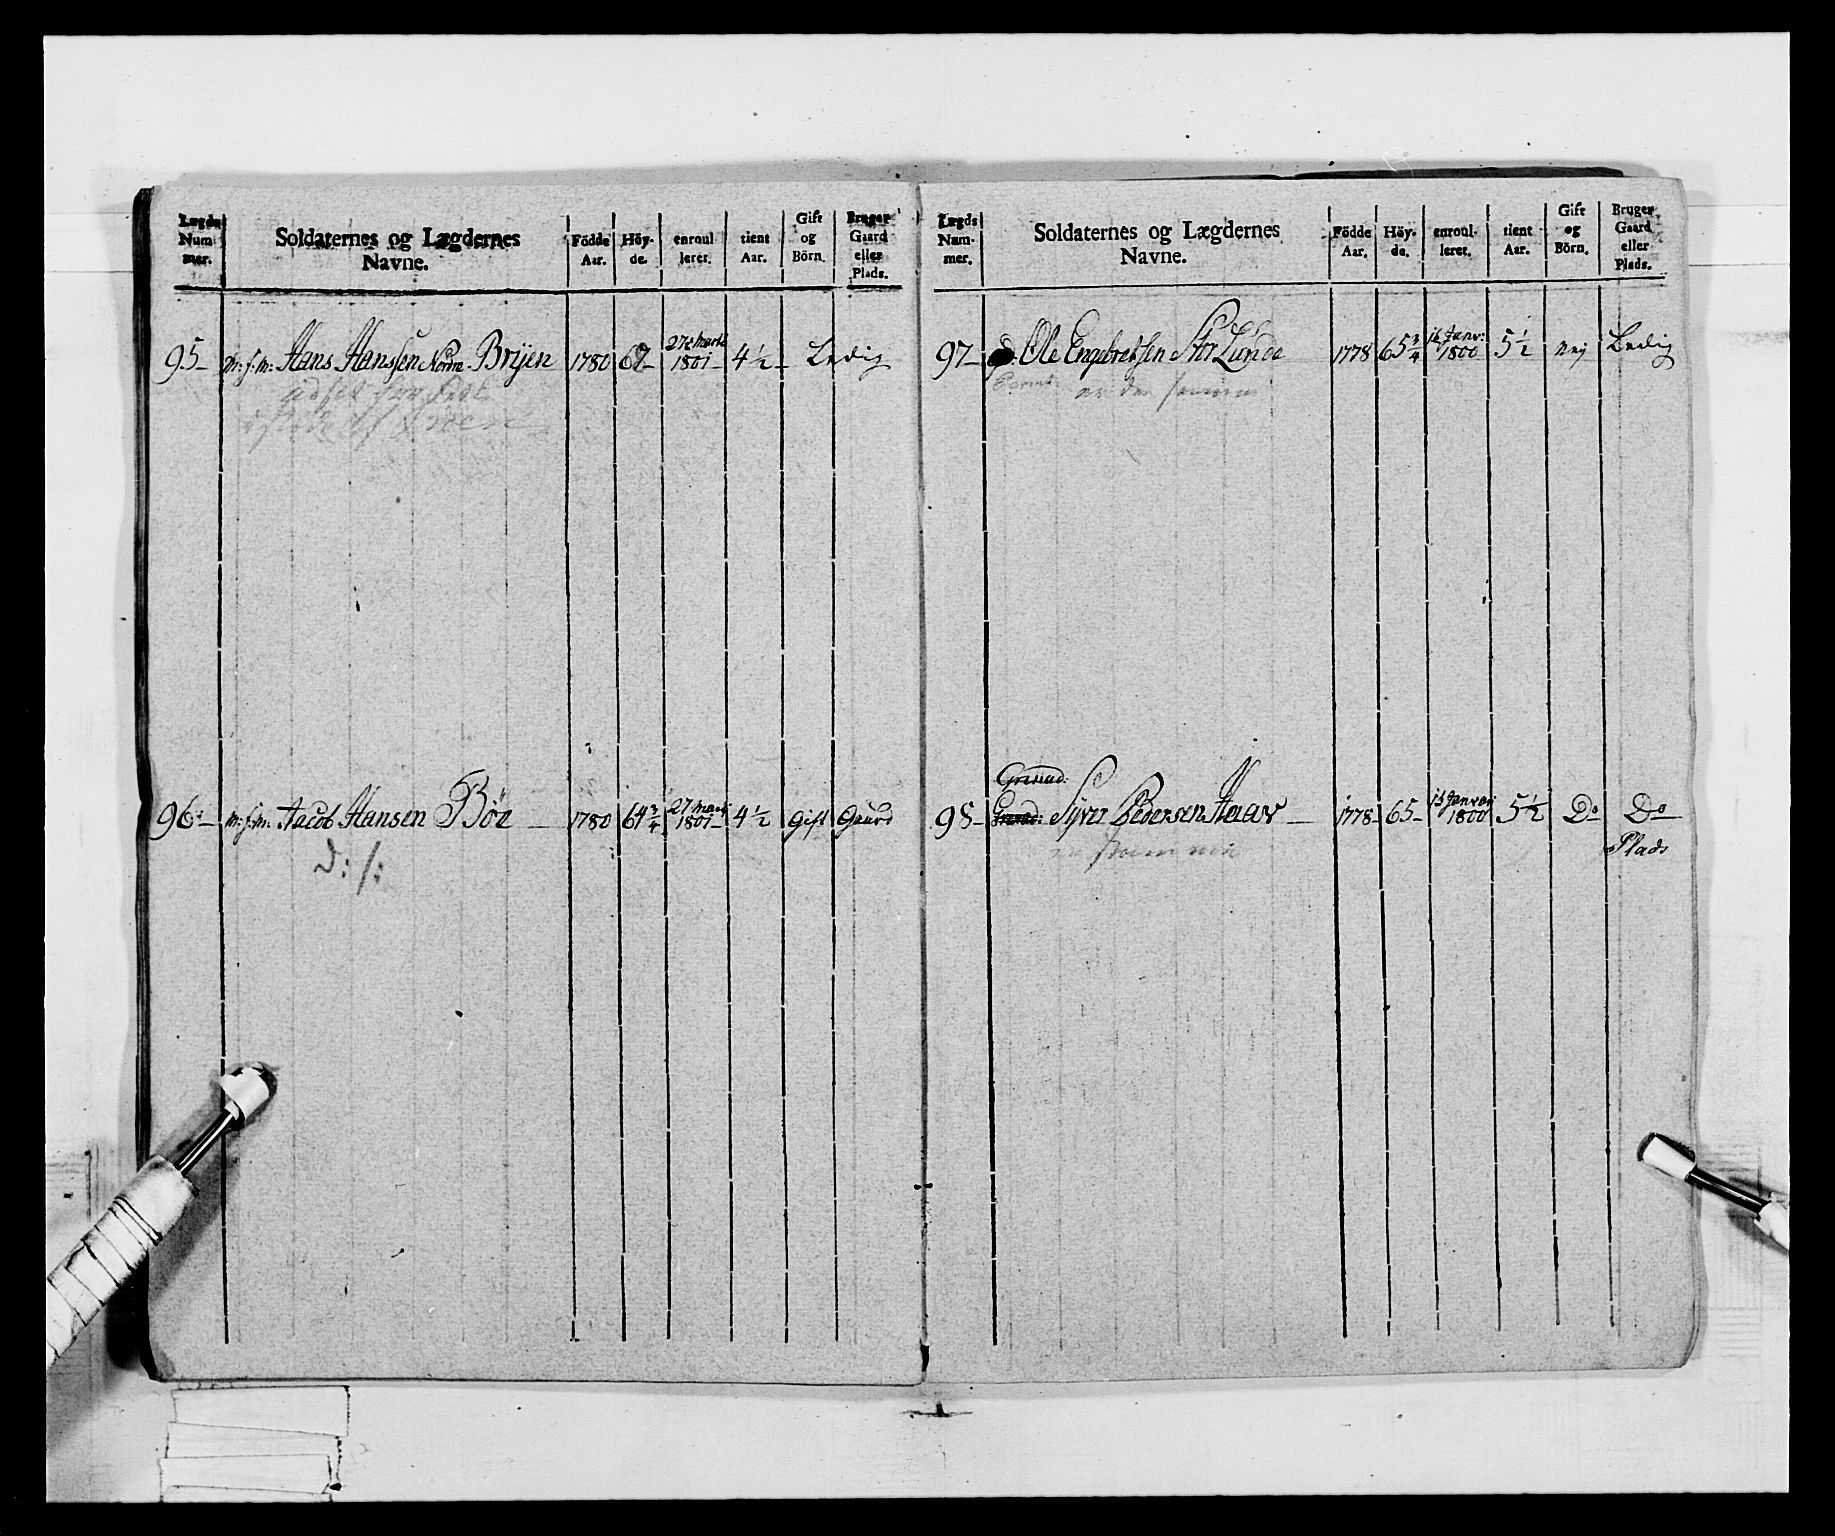 Lægds Num mer.
Soldaternes og Lægdernes Navne.
Födde Aar.
Höy- de.
enroul leret.
tient Aar.
Gift og Börn.
Bruger Gaard eller Plads.
95 m: f: m: Hans Hanssen Nordre Bryen 1780 67 27 Marti 1801 4 1/2 Ledig
96 m: f: m: Jacob Hansen Böe 1780 64 3/4 27 Marti 1801 4 1/2 Gift Gaard
D: f:
Lægds Num- mer.
Soldaternes og Lægdernes Navne.
Födde Aar.
Höy- de.
enroul- leret.
tient Aar.
Gift og Börn.
Bruger Gaard eller Plads.
97 Ole Engebretsen Stor Lunde 1778 65 3/4 16 Janv: 1800 5 1/2 nej Ledig
er den samme
Grenad:
98 Syver Pedersen Haav 1778 65 16 Janvarj 1800 5 1/2 Do Do
Plads